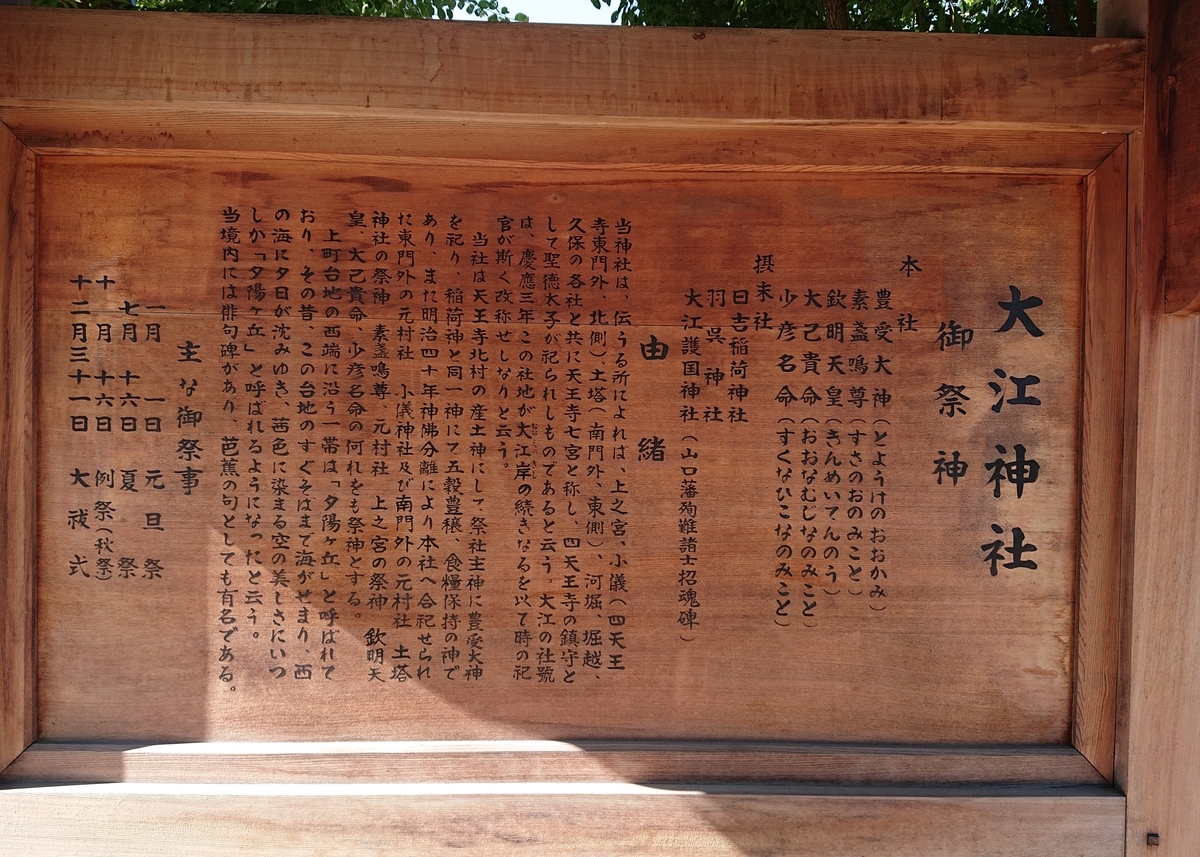 大江神社
御祭神
本社
豊受大神（とようけのおおかみ）
素盞鳴尊（すさのおのみこと）
欽明天皇（きんめいてんのう）
大己貴命（おおなむじなのみこと）
少彦名命（すくなひこなのみこと）
摂末社
日吉稲荷神社
羽呉神社
大江護国神社（山口藩殉難諸士招魂碑）
由緒
当神社は、伝うる所によれば、上之宮、小儀（四天王
寺東門外、北側）、土塔（南門外、東側）、河堀、堀越、
久保の各社と共に天王寺七宮と称し、四天王寺の鎮守と
して聖徳太子が祀られしものであると云う。大江の社號
は、慶應三年この社地が大江岸の続きなるを以て時の祀
官が斯く改称せしなりと云う。
当社は天王寺北村の産土神にして祭社主神に豊受大神
を祀り、稲荷神と同一神にて五穀豊穣、食糧保持の神で
あり、また明治四十年神佛分離により本社へ合祀せられ
た東門外の元村社　小儀神社及び南門外の元村社　土塔
神社の祭神　素盞鳴尊、元村社　上之宮の祭神　欽明天
皇、大己貴命、少彦名命の何れをも祭神とする。
上町台地の西端に沿う一帯は「夕陽ヶ丘」と呼ばれて
おり、その昔、この台地のすぐそばまで海がせまり、西
の海に夕日が沈みゆき、茜色に染まる空の美しさにいつ
しか「夕陽ヶ丘」と呼ばれるようになったと云う。
当境内には俳句碑があり、芭蕉の句としても有名である。
主な御祭事
一月　一日　元旦祭
七月　十六日　夏祭
十月　十六日　例祭（秋祭）
十二月三十一日　大祓式